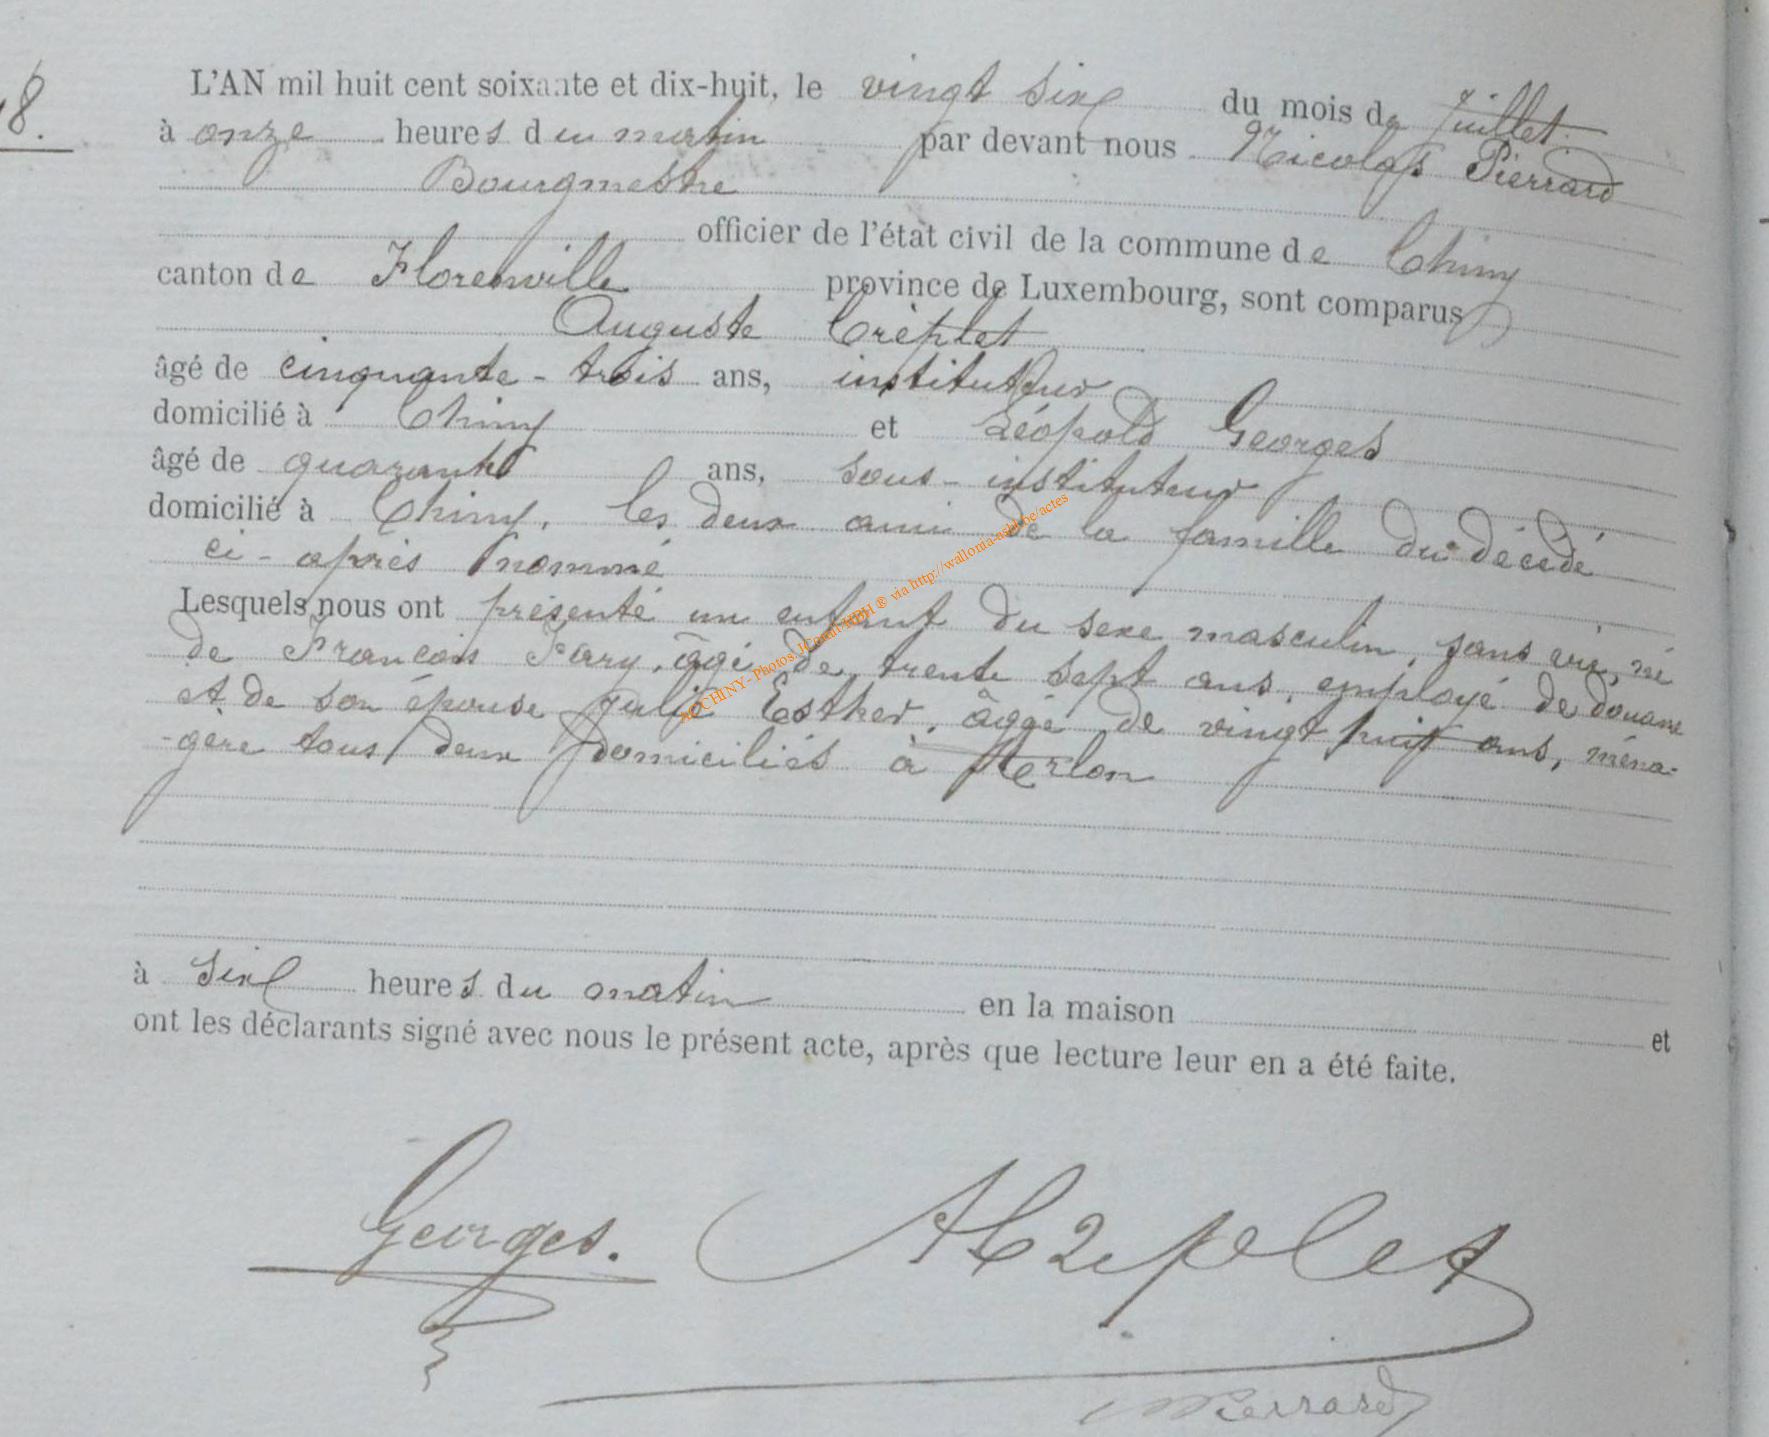 18.
L'AN mil huit cent soixante et dix-huit, le vingt six du mois de Juillet
à onze heures du matin par devant nous Nicolas Pierrard
Bourgmestre
officier de l'état civil de la commune de Chiny
canton de Florenville province de Luxembourg, sont comparus
Auguste Créplet
âgé de cinquante-trois ans, instituteur
domicilié à Chiny et Léopold Georges
âgé de quarante ans, sous-instituteur
domicilié à Chiny, les deux ami de la famille du décédé
ci-après nommé
Lesquels nous ont présenté un enfant du sexe masculin, sans vie, né
de François Fary, âgé de trente sept ans, employé de douane
et de son épouse Julie Esther, âgée de vingt huit ans, ména-
-gère tous deux domiciliés à Arlon
à six heures du matin en la maison et
ont les déclarants signé avec nous le présent acte, après que lecture leur en a été faite.
Georges. ACréplet
Pierrard